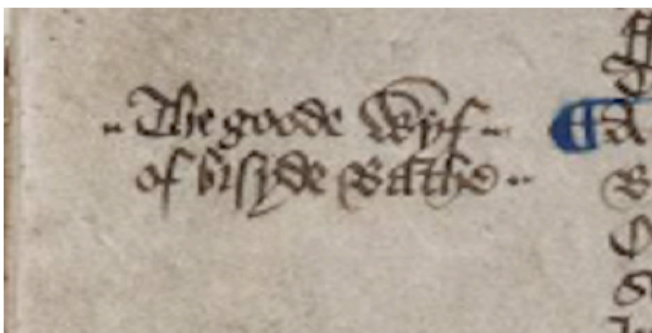 .. The goode Wyf ..
of bisyde Bathe ..